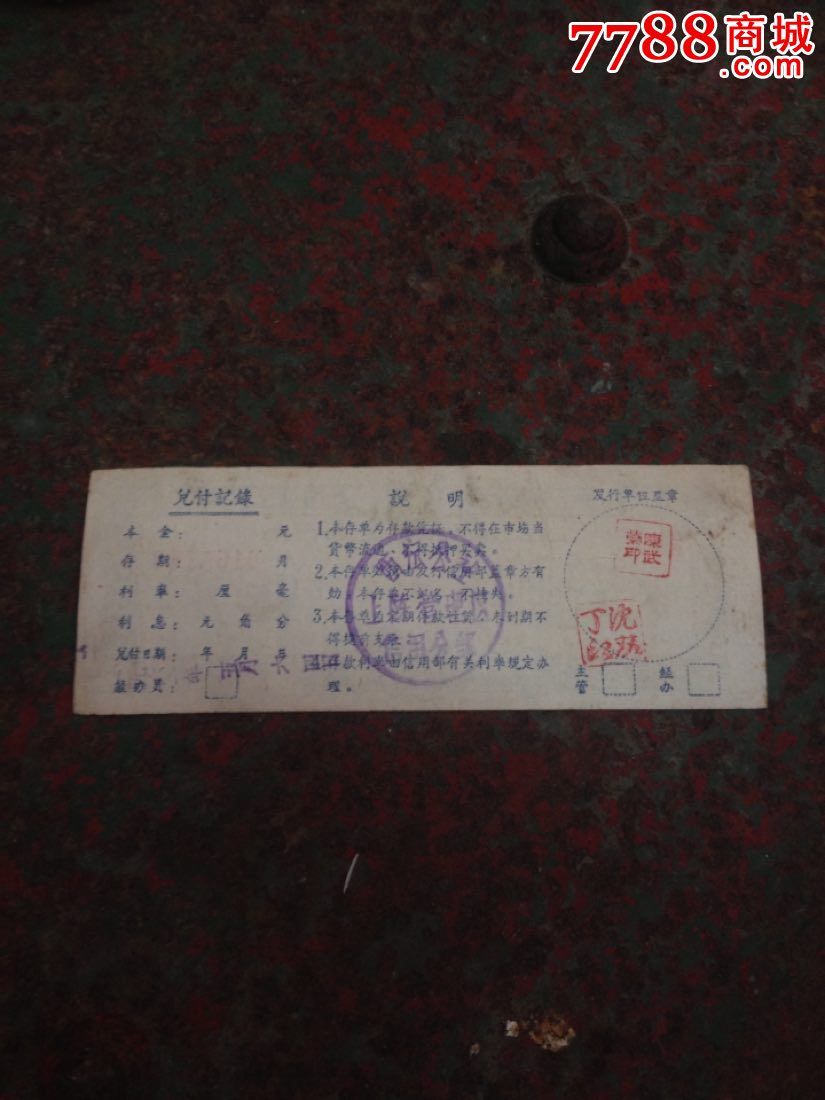 7788商城
.com
兌付記錄
本金： 元
存期： 月
利率： 厘 毫
利息： 元 角 分
兌付日期： 年 月 日
經办員：
説 明
1.本存单为存款凭证，不得在市场当
貨幣流通，不得抵押买卖。
2.本存单必須由发行信用部盖章方有
効。本存单不記名，不挂失。
3.本存单为定期存款性質，未到期不
得提前支取。
4.存款利率由信用部有关利率規定办
理。
信用分部
发行单位盖章
主管
經办